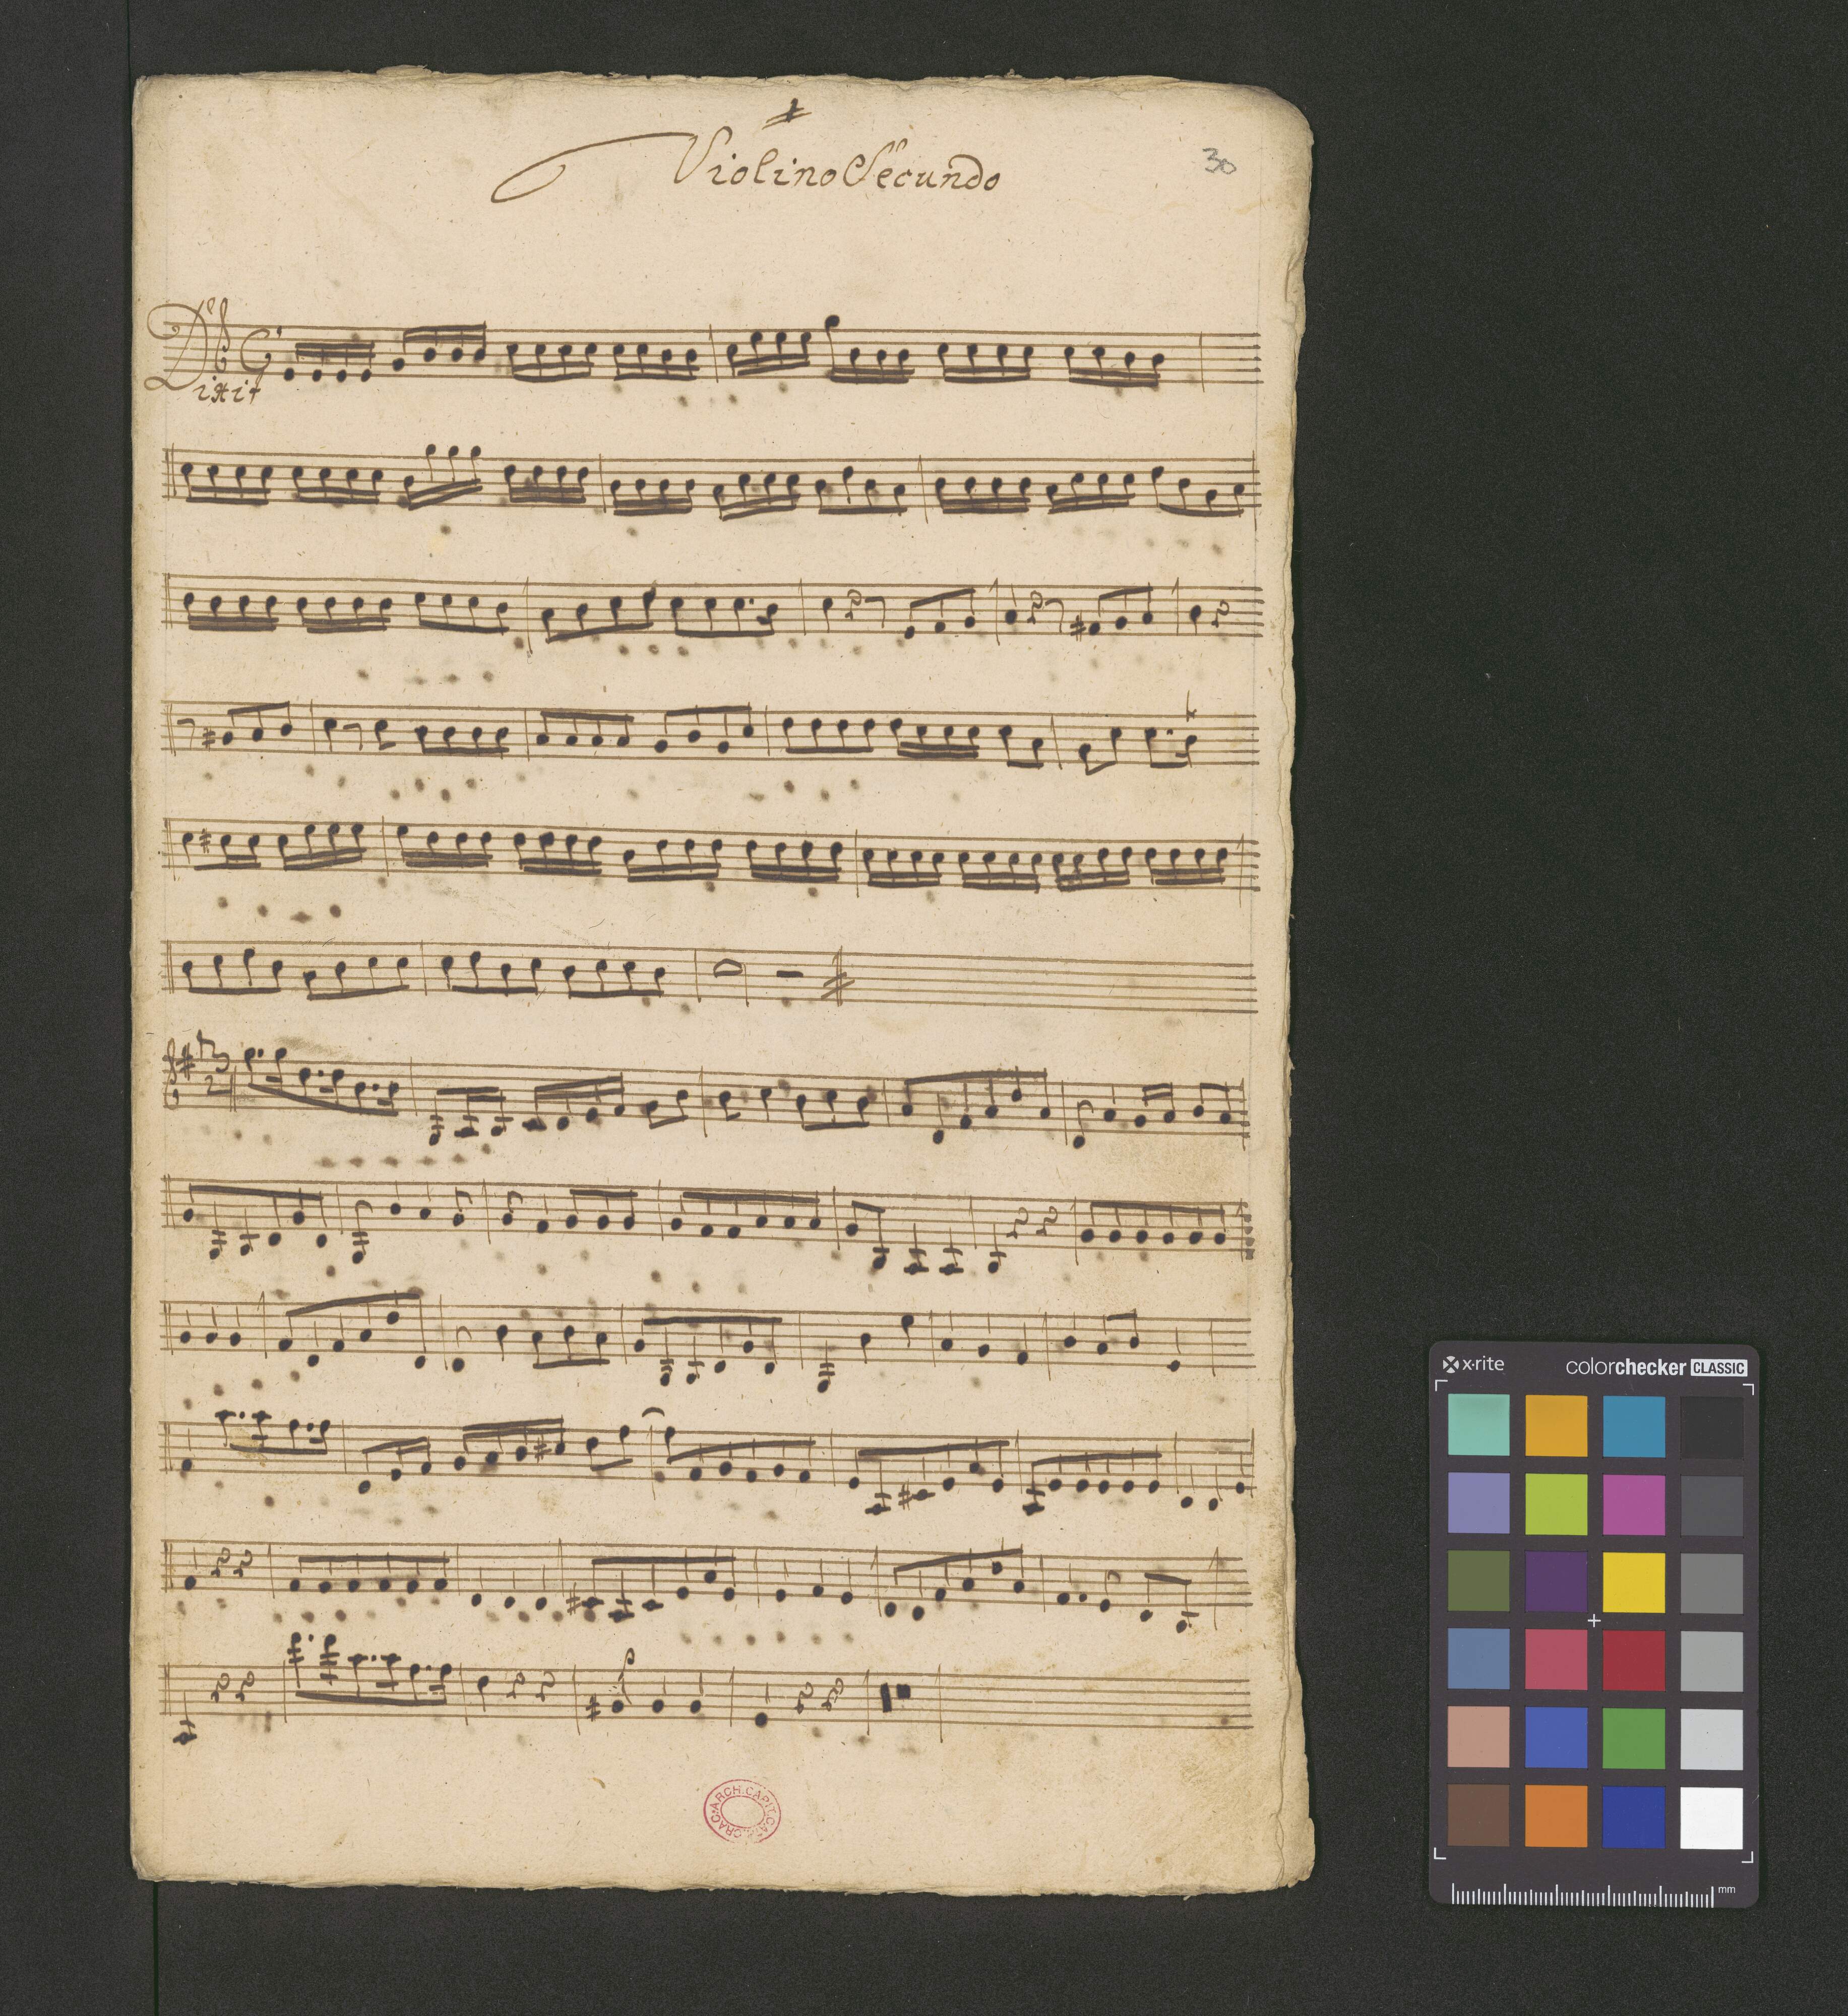 Violino Secundo
30
Dixit
C
3
2
ARCH. CAPIT. CATH. CRAC.
x-rite
colorchecker CLASSIC
mm